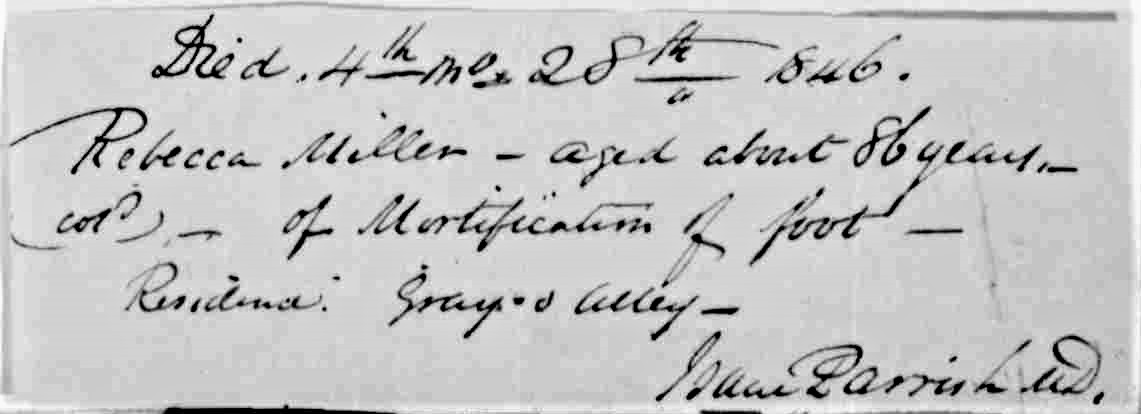 Died. 4th mo. 28th 1846.
Rebecca Miller - aged about 86 years. -
(cold) - of Mortification of foot -
Residence: Gray's Alley -
Isaac Parrish M.D.